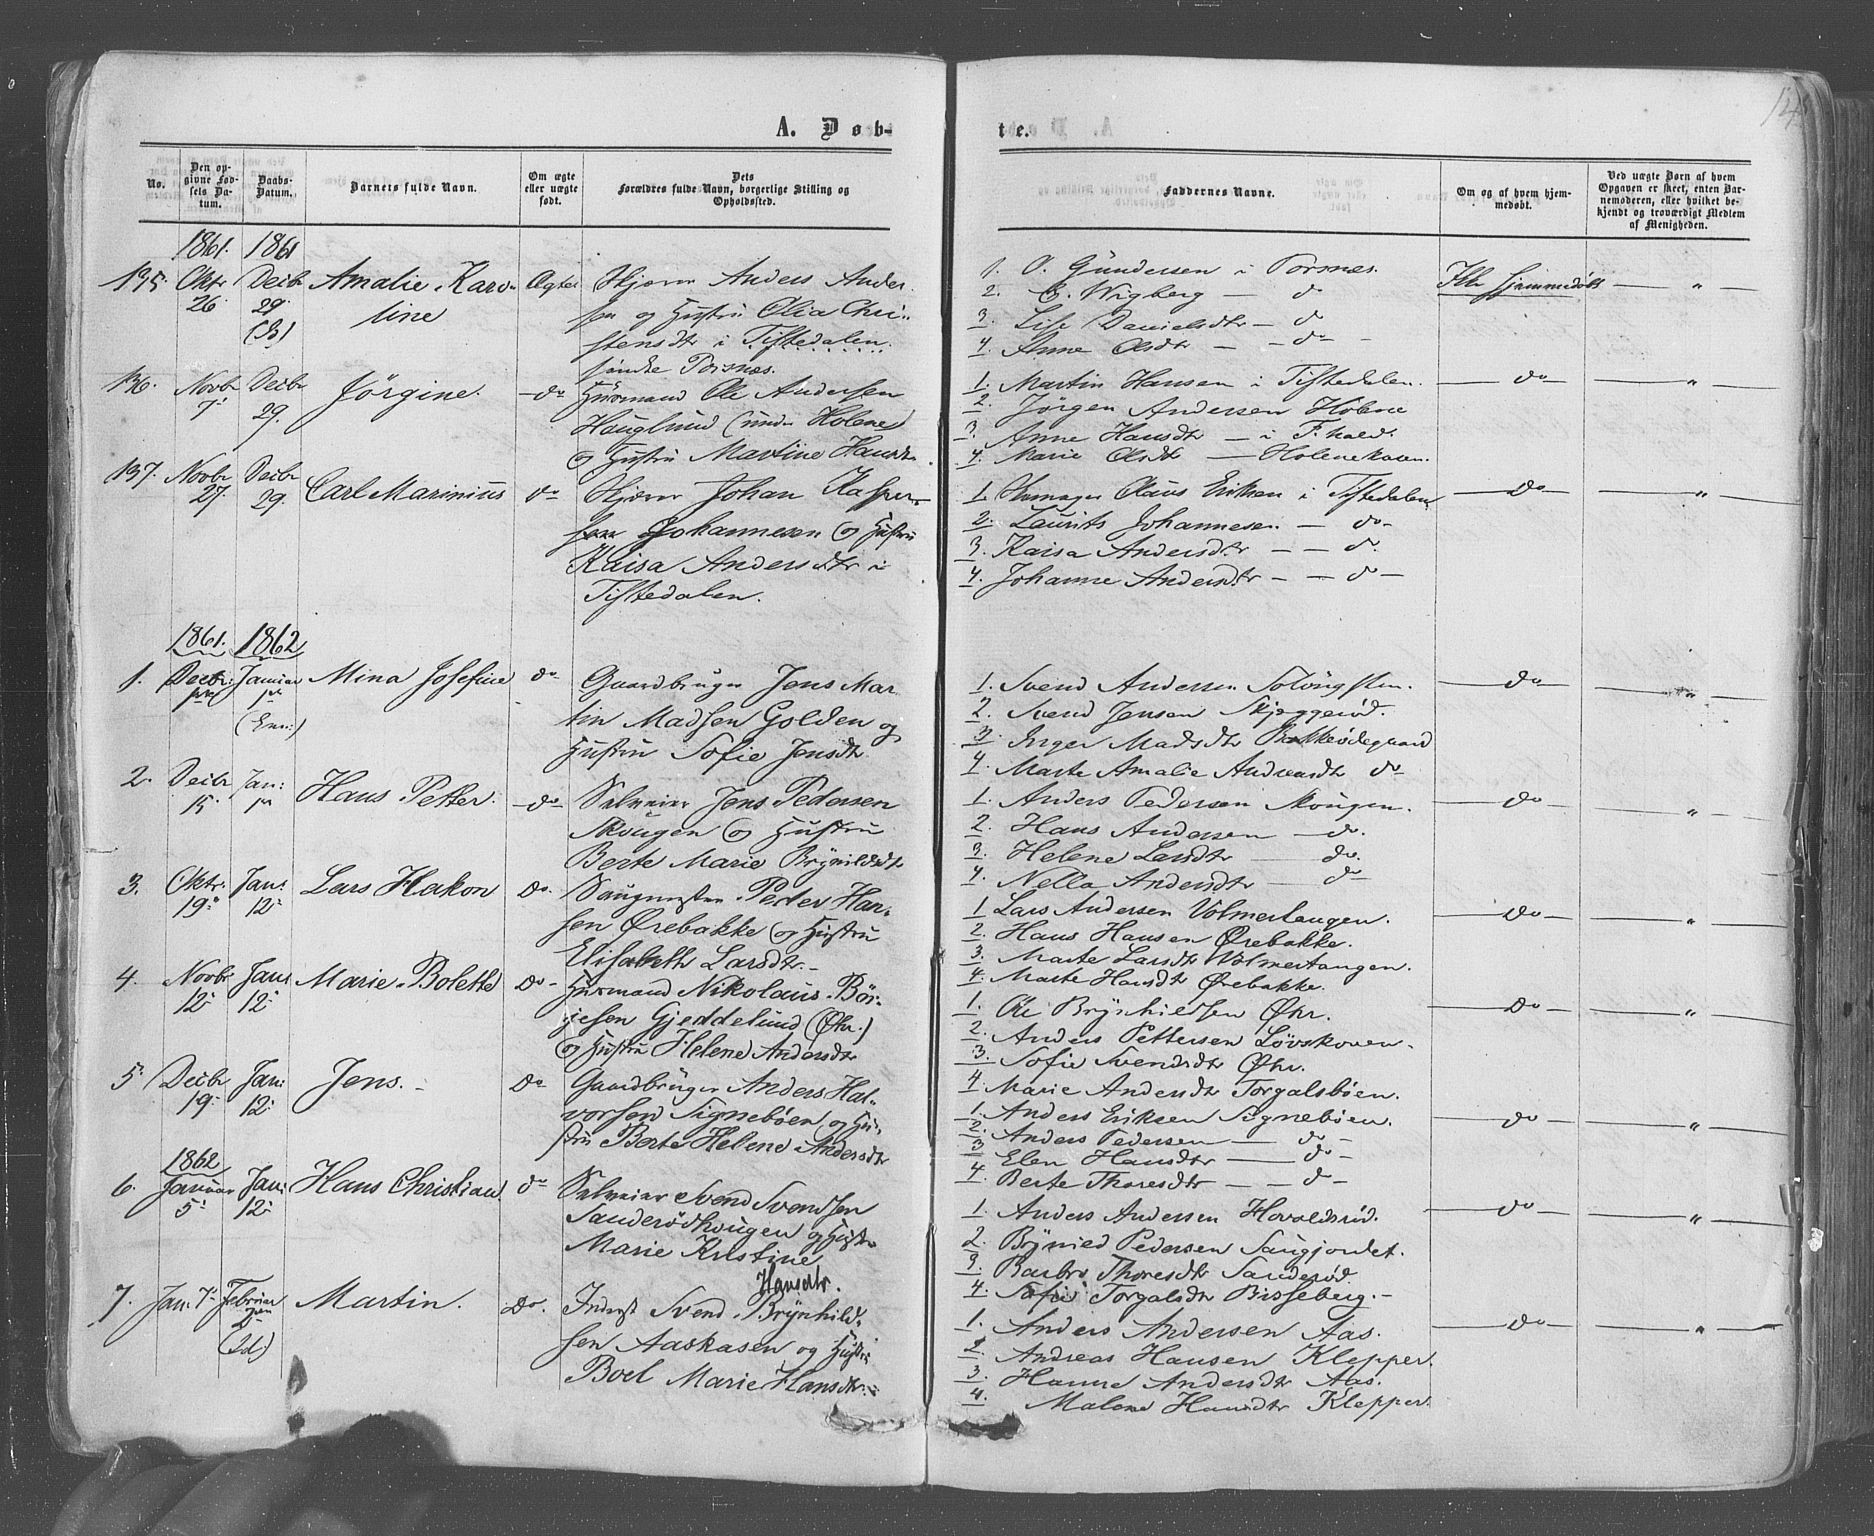 14
A. Døb-
te.
No.
Den opgivne Fødsels Datum.
Daabs-Datum.
Barnets fulde Navn.
Om ægte eller uægte født.
Dets Forældres fulde Navn, borgerlige Stilling og Opholdsted.
Faddernes Navne.
Om og af hvem hjemmedøbt.
Ved uægte Børn af hvem Opgaven er skeet, enten Barnemoderen, eller hvilket bekjendt og troværdigt Medlem af Menigheden.
1861. 1861
135. Oktr 26 Decbr 29. Amalie Karoline Ægte
Anders Andersen og Hustru Olia Christensdtr i Tistedalen
Torsnæs.
1. O. Gundersen i Torsnæs.
2. E. Wigberg — do
3. Lise Danielsdtr — do
4. Anne Olsdtr — do —
Ikke hjemmedøbt — "
136. Novbr 7. Decbr 29. Jörgine. do
Huusmand Ole Andersen
Hauglund (under Holene
og Hustru Martine Hansdtr
1. Martin Hansen i Tistedalen.
2. Jörgen Andersen Holene
3. Anne Hansdtr — i F.hald.
4. Marie Olsdtr — Holenekasen.
do — "
137. Novbr 27. Decbr 29. Carl Marinius do
Johan Kasper
Johannesen og Hustru
Kaisa Andersdtr i
Tistedalen.
1. Claus Eriksen i Tistedalen
2. Laurits Johannesen — do
3. Kaisa Andersdtr — do.
4. Johanne Andersdtr — do —
do — "
1861. 1862
1. Decbr Januar 1ste Mina Josefine do
Gaardbruger Jens Martin Madsen Golden og
Hustru Sofie Jensdtr
1. Svend Andersen
2. Svend Jensen Skjeggeröd.
3. Inger Madsdtr Bakkeödegaard
4. Marte Amalie Andreasdtr do
do — "
2. Decbr 15 Jan: 1ste Hans Petter. do
Jens Pedersen
Skougen og Hustru
Berte Marie Brynildsdtr
1. Anders Pedersen Skougen.
2. Hans Andersen — do.
3. Helene Larsdtr — do.
4. Nella Andersdtr — do
do — "
3. Oktr. 19 Jan: 12 Lars Hakon do.
Saugmester Peder Hansen Örebakke og Hustru
Elisabeth Larsdtr.
1. Lars Andersen Volmertangen.
2. Hans Hansen Örebakke.
3. Marte Larsdtr Volmertangen.
4. Marte Hansdtr Örebakke.
do — "
4. Novbr 12 Jan: 12 Marie Bolette do
Huusmand Nikolaus Börjesen Gjeddelund (Öhr.)
og Hustru Helene Andersdtr
1. Ole Brynhildsen Öhr.
2. Anders Pettersen Lövskoven.
3. Sofie Svendsdtr Öhr.
4. Marie Andersdtr Torgalsböen.
do — "
5 Decbr 19 Jan: 12 Jens. do
Gaardbruger Anders Halvorsen Signeböen og Hustru Berte Helene Andersdtr
1. Anders Eriksen Signeböen.
2. Anders Pedersen — do —
3 Elen Hansdtr — do —
4 Berte Thoresdtr — do —
do — "
1862
6. Januar 5 Jan: 12 Hans Christian do
Svend Svendsen
og Hustru
Marie Kristine
Hansdtr.
1. Anders Andersen
2. Brynild Pedersen Saugjordet.
3. Barbro Thoresdtr Sanderöd
4. Sofie Torgalsdtr Bisseberg.
do — "
7. Jan: 7 Februar 2 Martin. do.
Inderst Svend Brynhildsen Aaskasen og Hustru
Boel Marie Hansdtr.
1. Anders Andersen Aas.
2. Andreas Hansen Klepper.
3. Hanne Andersdtr Aas.
4. Malene Hansdtr Klepper.
do — "